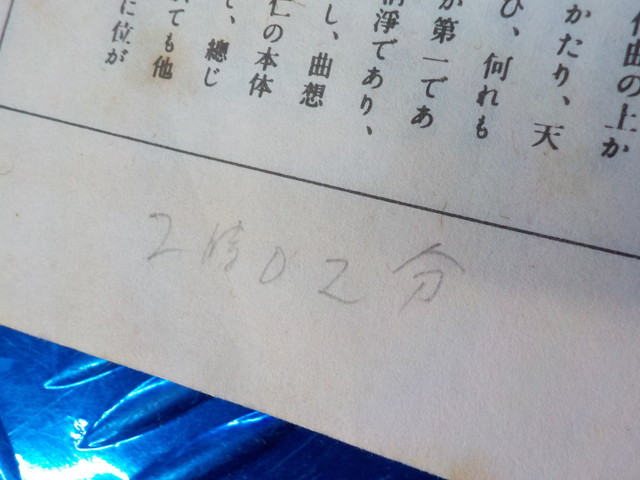 作曲の上か
かたり、天
ひ、何れも
が第一であ
清淨であり、
し、曲想
仁の本体
て、總じ
ても他
に位が
2時02分